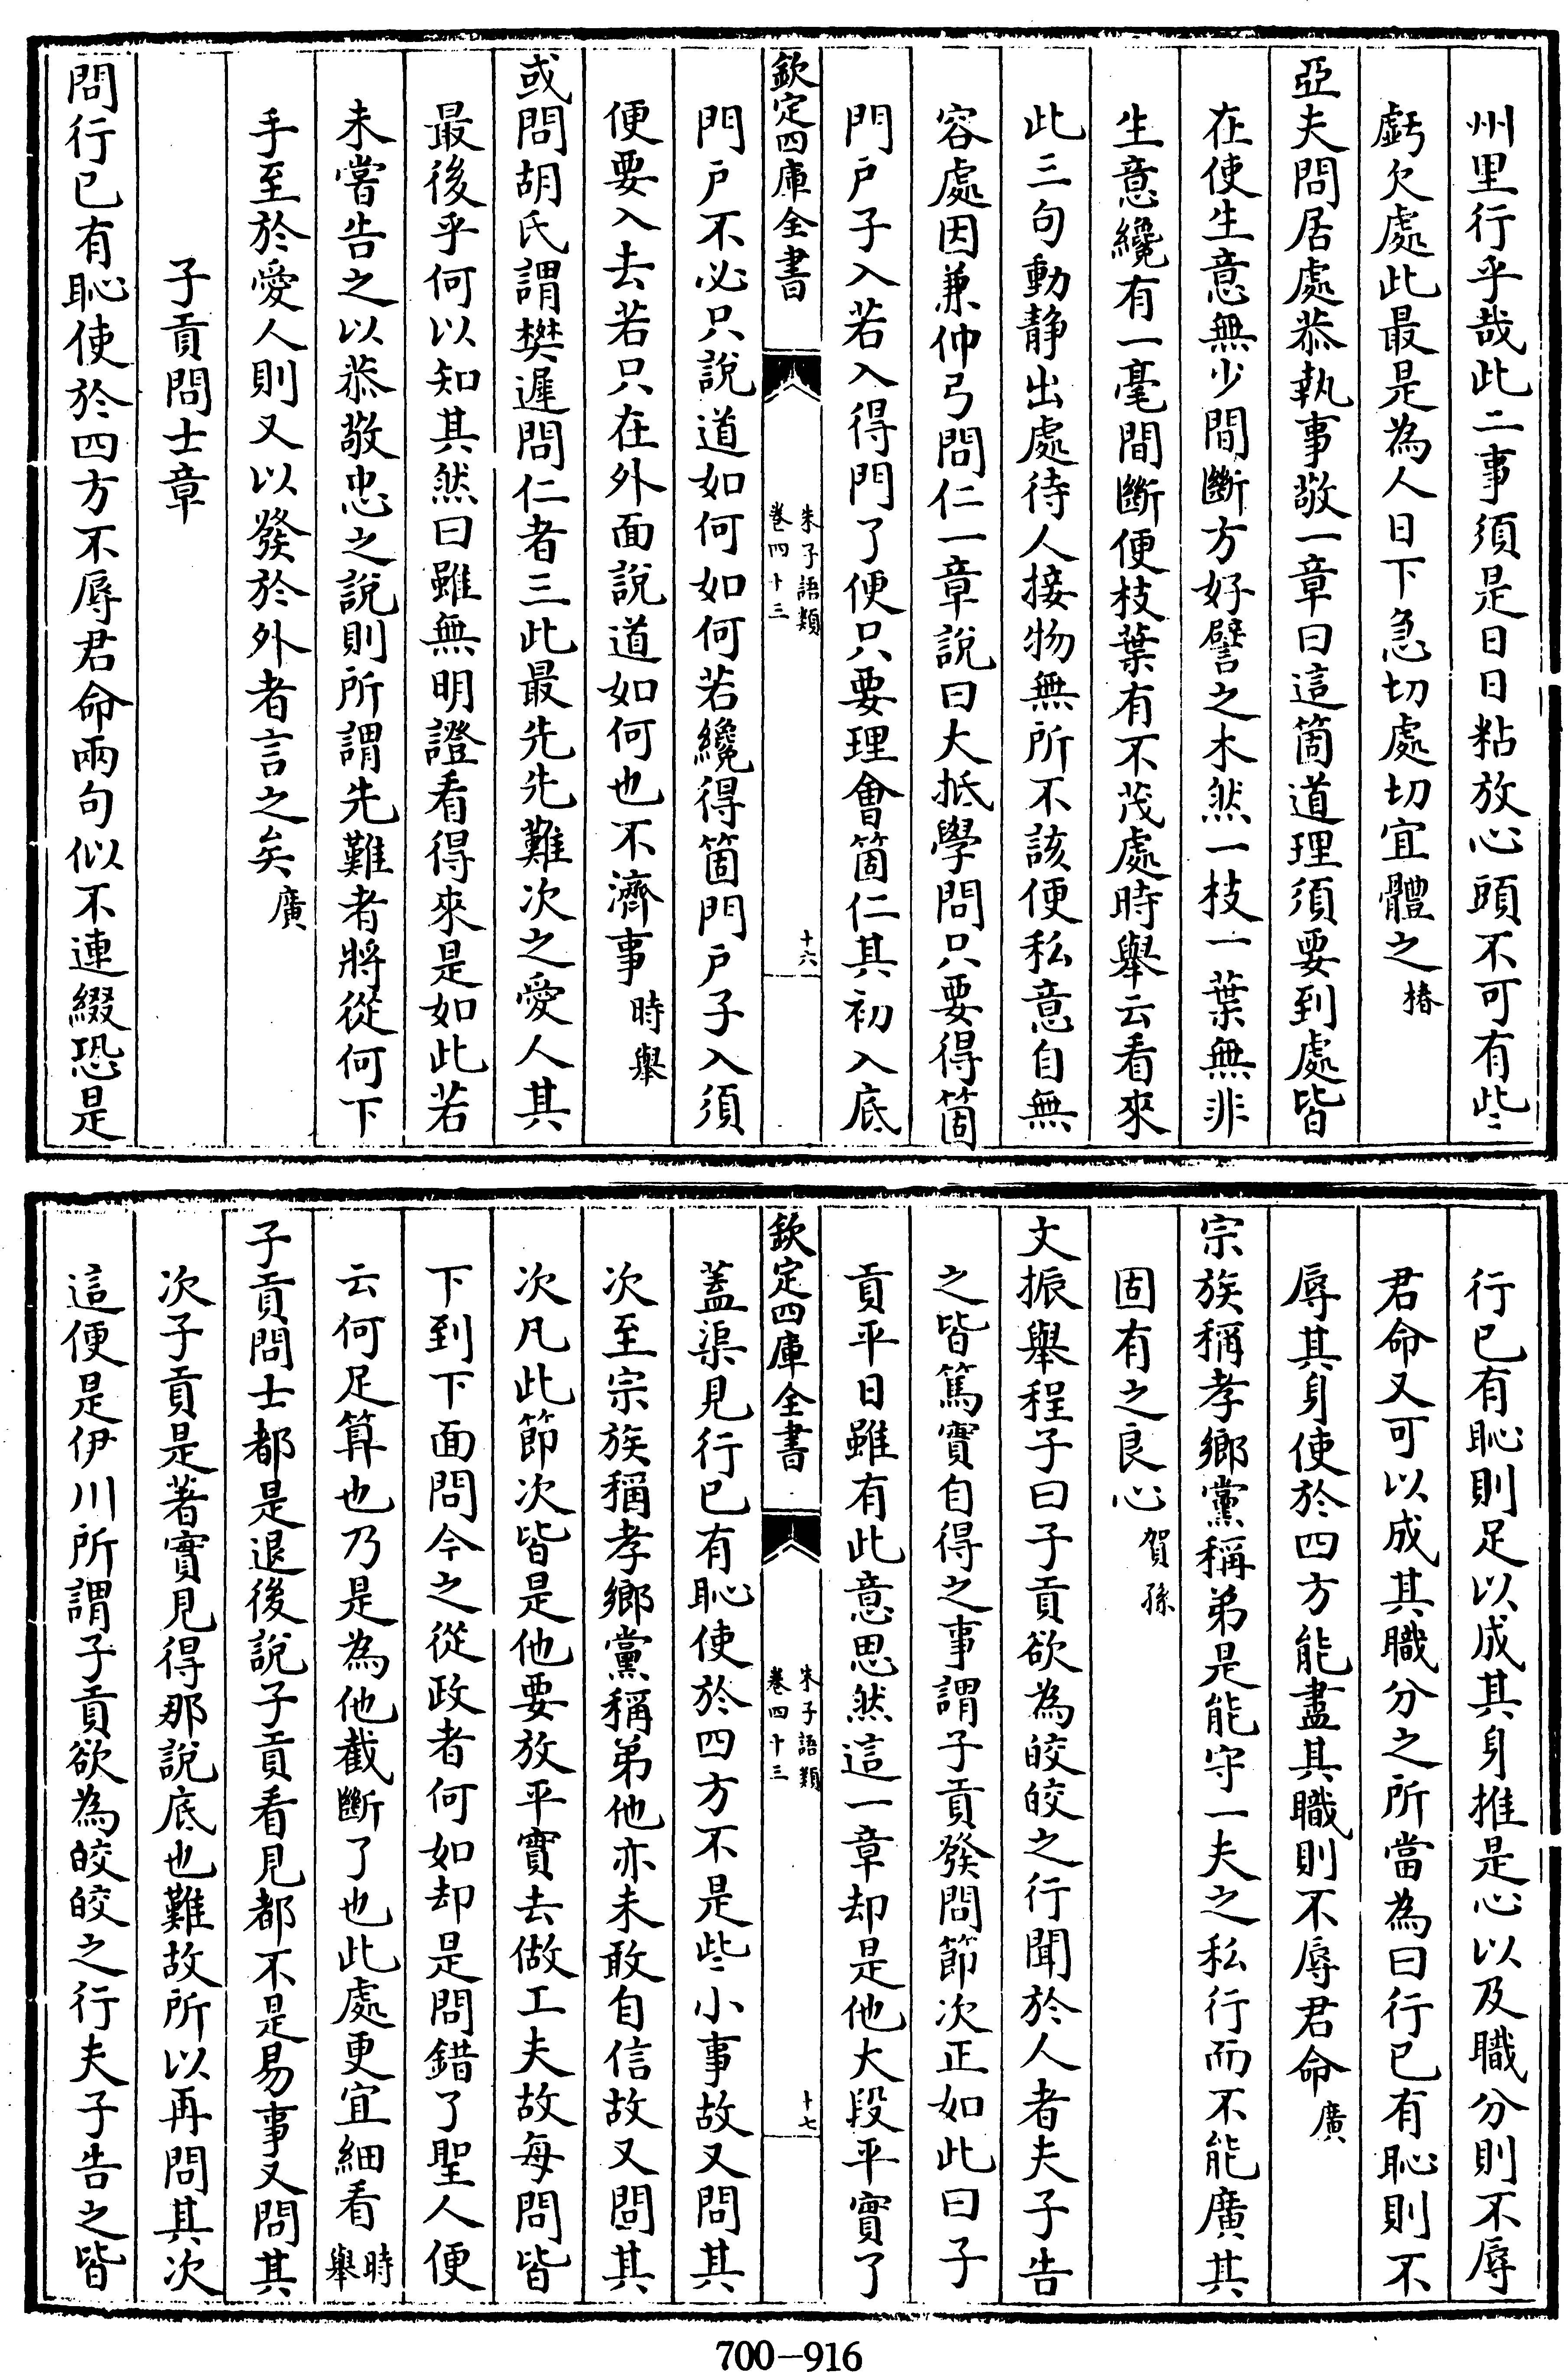 州里行乎哉此二事須是日日粘放心頭不可有些
虧欠處此最是為人日下急切處切宜體之椿
亞夫問居處恭執事敬一章曰這箇道理須要到處皆
在使生意無少間斷方好譬之木然一枝一葉無非
生意纔有一毫間斷便枝葉有不茂處時舉云看來
此三句動靜出處待人接物無所不該便私意自無
容處因兼仲弓問仁一章說曰大抵學問只要得箇
門戶子入若入得門了便只要理會箇仁其初入底
欽定四庫全書
朱子語類
卷四十三
十六
門戶不必只說道如何如何若纔得箇門戶子入須
便要入去若只在外面說道如何也不濟事時舉
或問胡氏謂樊遲問仁者三此最先先難次之愛人其
最後乎何以知其然曰雖無明證看得來是如此若
未嘗告之以恭敬忠之說則所謂先難者將從何下
手至於愛人則又以發於外者言之矣廣
子貢問士章
問行已有恥使於四方不辱君命兩句似不連綴恐是
行已有恥則足以成其身推是心以及職分則不辱
君命又可以成其職分之所當為曰行已有恥則不
辱其身使於四方能盡其職則不辱君命廣
宗族稱孝鄉黨稱弟是能守一夫之私行而不能廣其
固有之良心賀孫
文振舉程子曰子貢欲為皎皎之行聞於人者夫子告
之皆篤實自得之事謂子貢發問節次正如此曰子
貢平日雖有此意思然這一章却是他大段平實了
欽定四庫全書
朱子語類
卷四十三
十七
蓋渠見行已有恥使於四方不是些小事故又問其
次至宗族稱孝鄉黨稱弟他亦未敢自信故又問其
次凡此節次皆是他要放平實去做工夫故每問皆
下到下面問今之從政者何如却是問錯了聖人便
云何足算也乃是為他截斷了也此處更宜細看時舉
子貢問士都是退後說子貢看見都不是易事又問其
次子貢是著實見得那說底也難故所以再問其次
這便是伊川所謂子貢欲為皎皎之行夫子告之皆
700-916